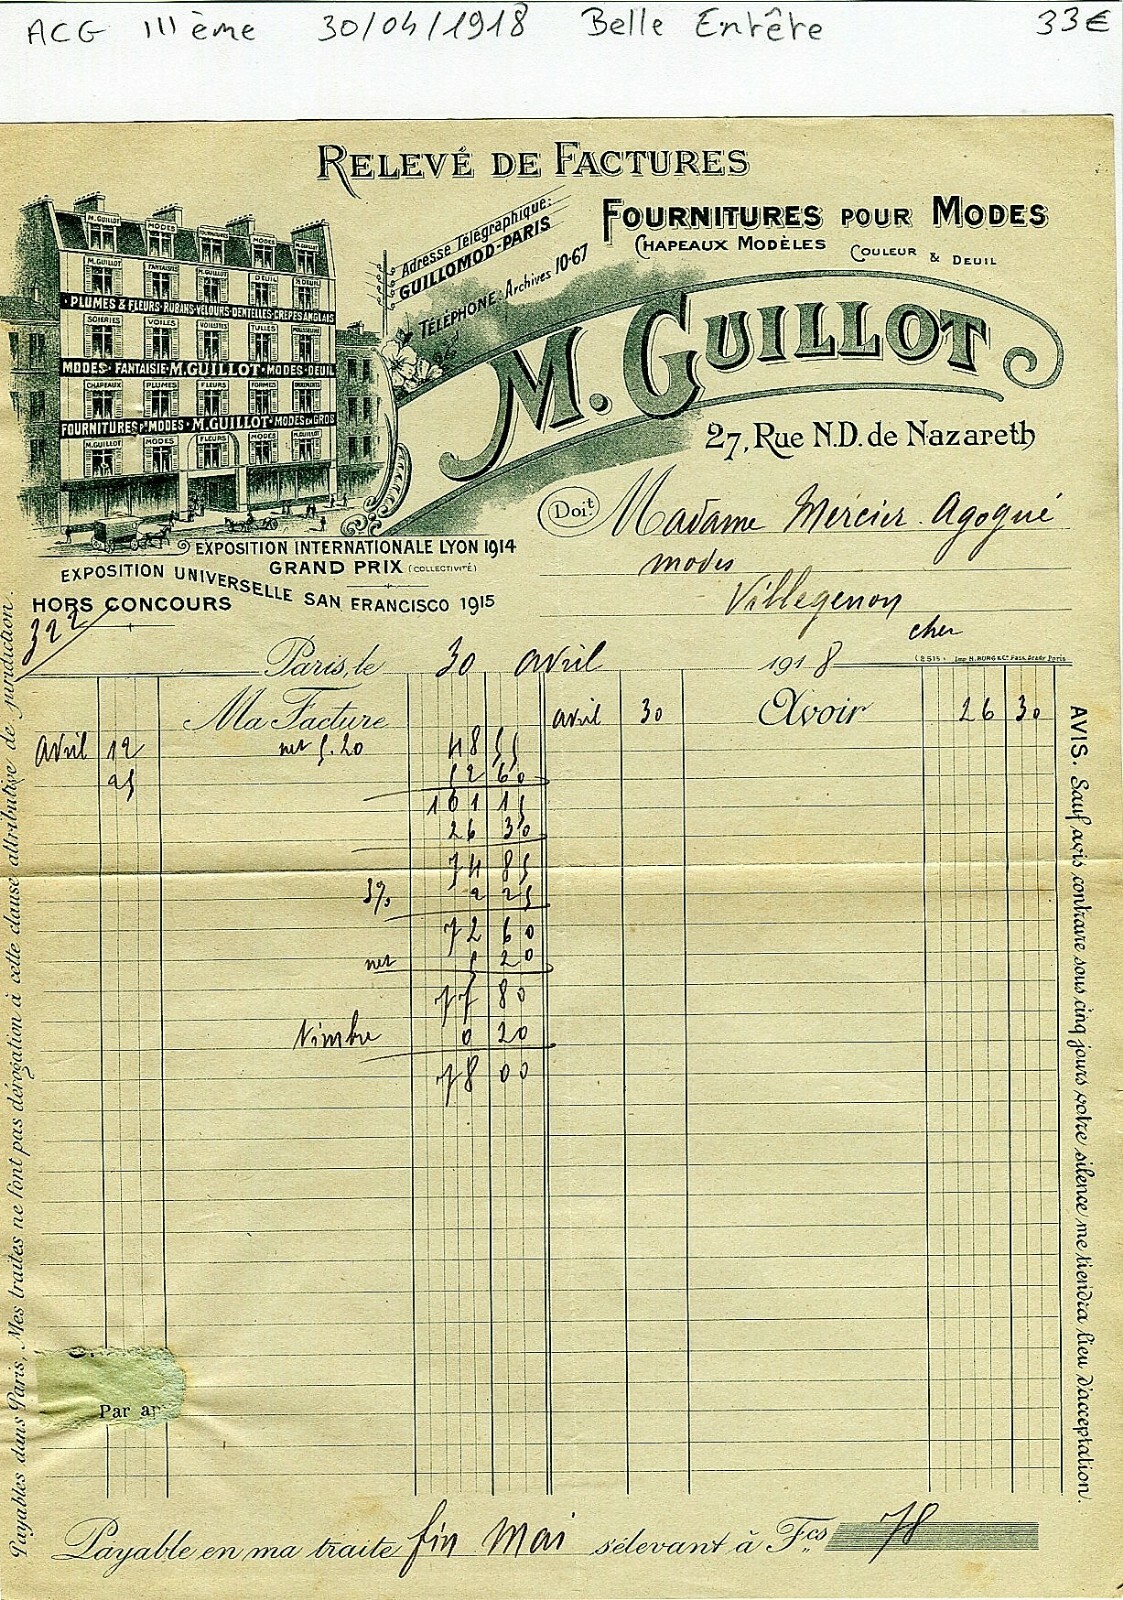 ACG IIIème 30/04/1918 Belle Entête 33€
RELEVÉ DE FACTURES
Adresse Télégraphique:
GUILLOMOD-PARIS
TÉLÉPHONE: Archives 10-67
FOURNITURES POUR MODES
CHAPEAUX MODÈLES COULEUR & DEUIL
M. GUILLOT
27, Rue N.D. de Nazareth
M. GUILLOT MODES MODES
M. GUILLOT FANTAISIES M. GUILLOT DEUIL DEUIL
PLUMES & FLEURS-RUBANS-VELOURS-DENTELLES-CRÊPES ANGLAIS
SOIERIES VOILES VOILETTES TULLES
MODES-FANTAISIE-M. GUILLOT-MODES-DEUIL
CHAPEAUX PLUMES FLEURS FORMES
FOURNITURES Pr MODES-M. GUILLOT-MODES EN GROS
M. GUILLOT MODES FLEURS MODES M. GUILLOT
EXPOSITION INTERNATIONALE LYON 1914
GRAND PRIX (COLLECTIVITÉ)
EXPOSITION UNIVERSELLE SAN FRANCISCO 1915
HORS CONCOURS
322
Doit Madame Mercier Agogué
modes
Villegenon
cher
Paris, le 30 avril 1918
Ma Facture avril 30 Avoir 26 30
avril 12 net 5.20 48 55
25 52 60
101 15
26 30
74 85
3% 2 25
72 60
net 5 20
77 80
Timbre 0 20
78 00
Par
Payable en ma traite fin Mai s'élevant à Fcs 78
Payables dans Paris, Mes traites ne font pas dérogation à cette clause attributive de juridiction.
AVIS. Sauf avis contraire sous cinq jours votre silence me tiendra lieu d'acceptation.